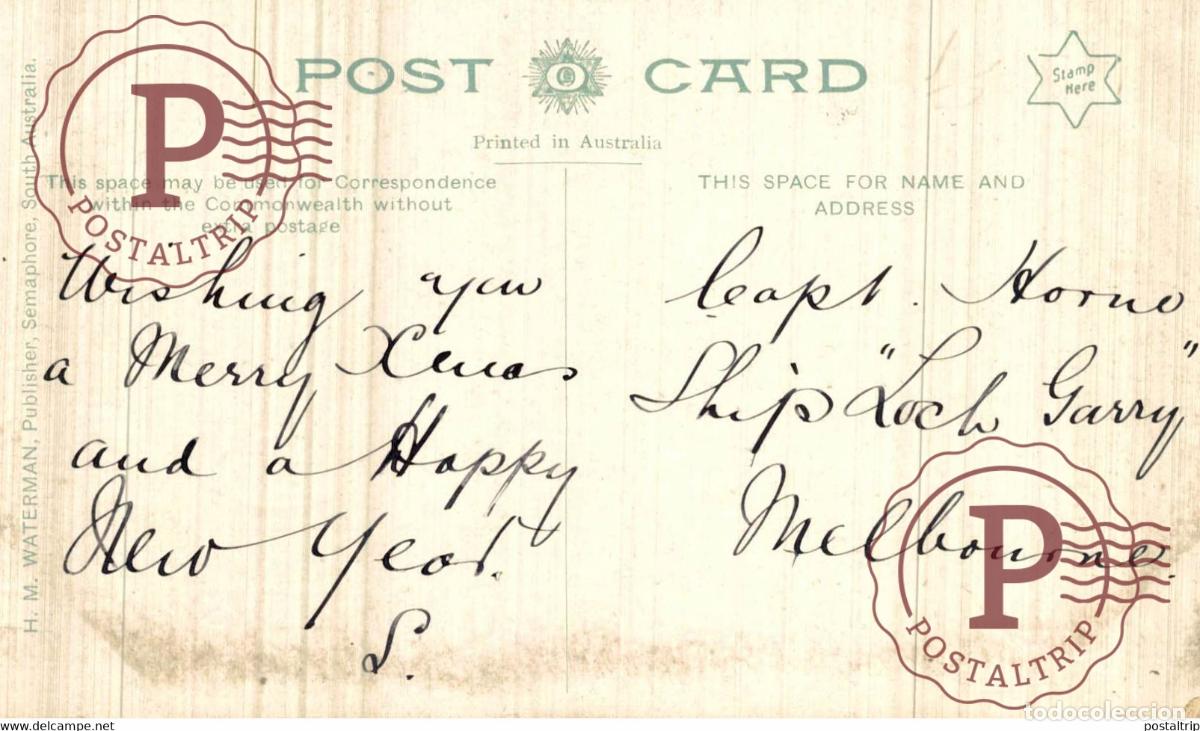 POST CARD
Stamp
Here
Printed in Australia
This space may be used for Correspondence
within the Commonwealth without
extra postage
THIS SPACE FOR NAME AND
ADDRESS
H. M. WATERMAN, Publisher, Semaphore, South Australia.
Wishing you
a Merry Xmas
and a Happy
New Year.
S.
Capt. Horne
Ship "Loch Garry"
Melbourne.
P
POSTALTRIP
P
POSTALTRIP
todocoleccion
www.delcampe.net
postaltrip